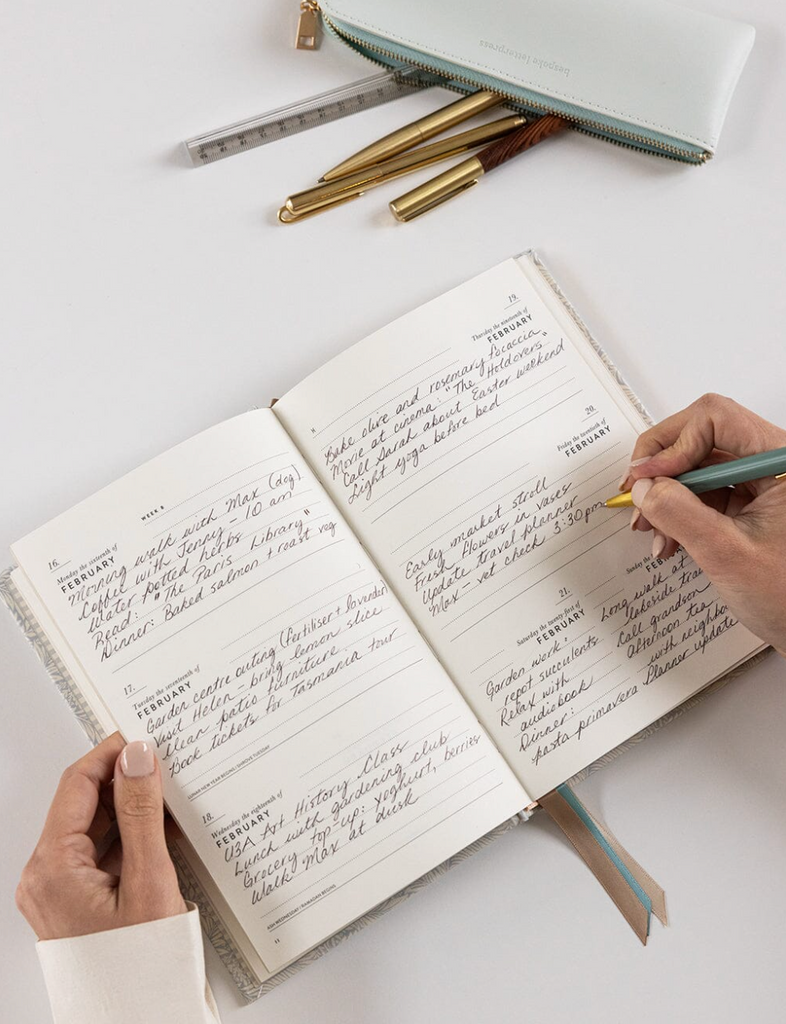 bespoke letterpress
WEEK 8
16.
Monday the sixteenth of
FEBRUARY
Morning walk with Max (dog)
Coffee with Jenny - 10 am
Water potted herbs
Read: "The Paris Library"
Dinner: Baked salmon + roast veg
17.
Tuesday the seventeenth of
FEBRUARY
Garden centre outing (fertiliser + lavender)
Visit Helen - bring lemon slice
Clean patio furniture.
Book tickets for Tasmania tour
NEW YEAR BEGINS / SHROVE TUESDAY
18.
Wednesday the eighteenth of
FEBRUARY
U3A Art History Class
Lunch with gardening club
Grocery top-up: yoghurt, berries
Walk Max at dusk
ASH WEDNESDAY / RAMADAN BEGINS
19.
Thursday the nineteenth of
FEBRUARY
Bake olive and rosemary focaccia
Movie at cinema: "The Holdovers"
Call Sarah about Easter weekend
Light yoga before bed
20.
Friday the twentieth of
FEBRUARY
Early market stroll
Fresh flowers in vases
Update travel planner
Max - vet check 3:30pm
21.
Saturday the twenty-first of
FEBRUARY
Garden work,
repot succulents
Relax with
audiobook
Dinner:
pasta primavera
Sunday the
Long walk at
lakeside
Call grandson
Afternoon tea
with
Planner update